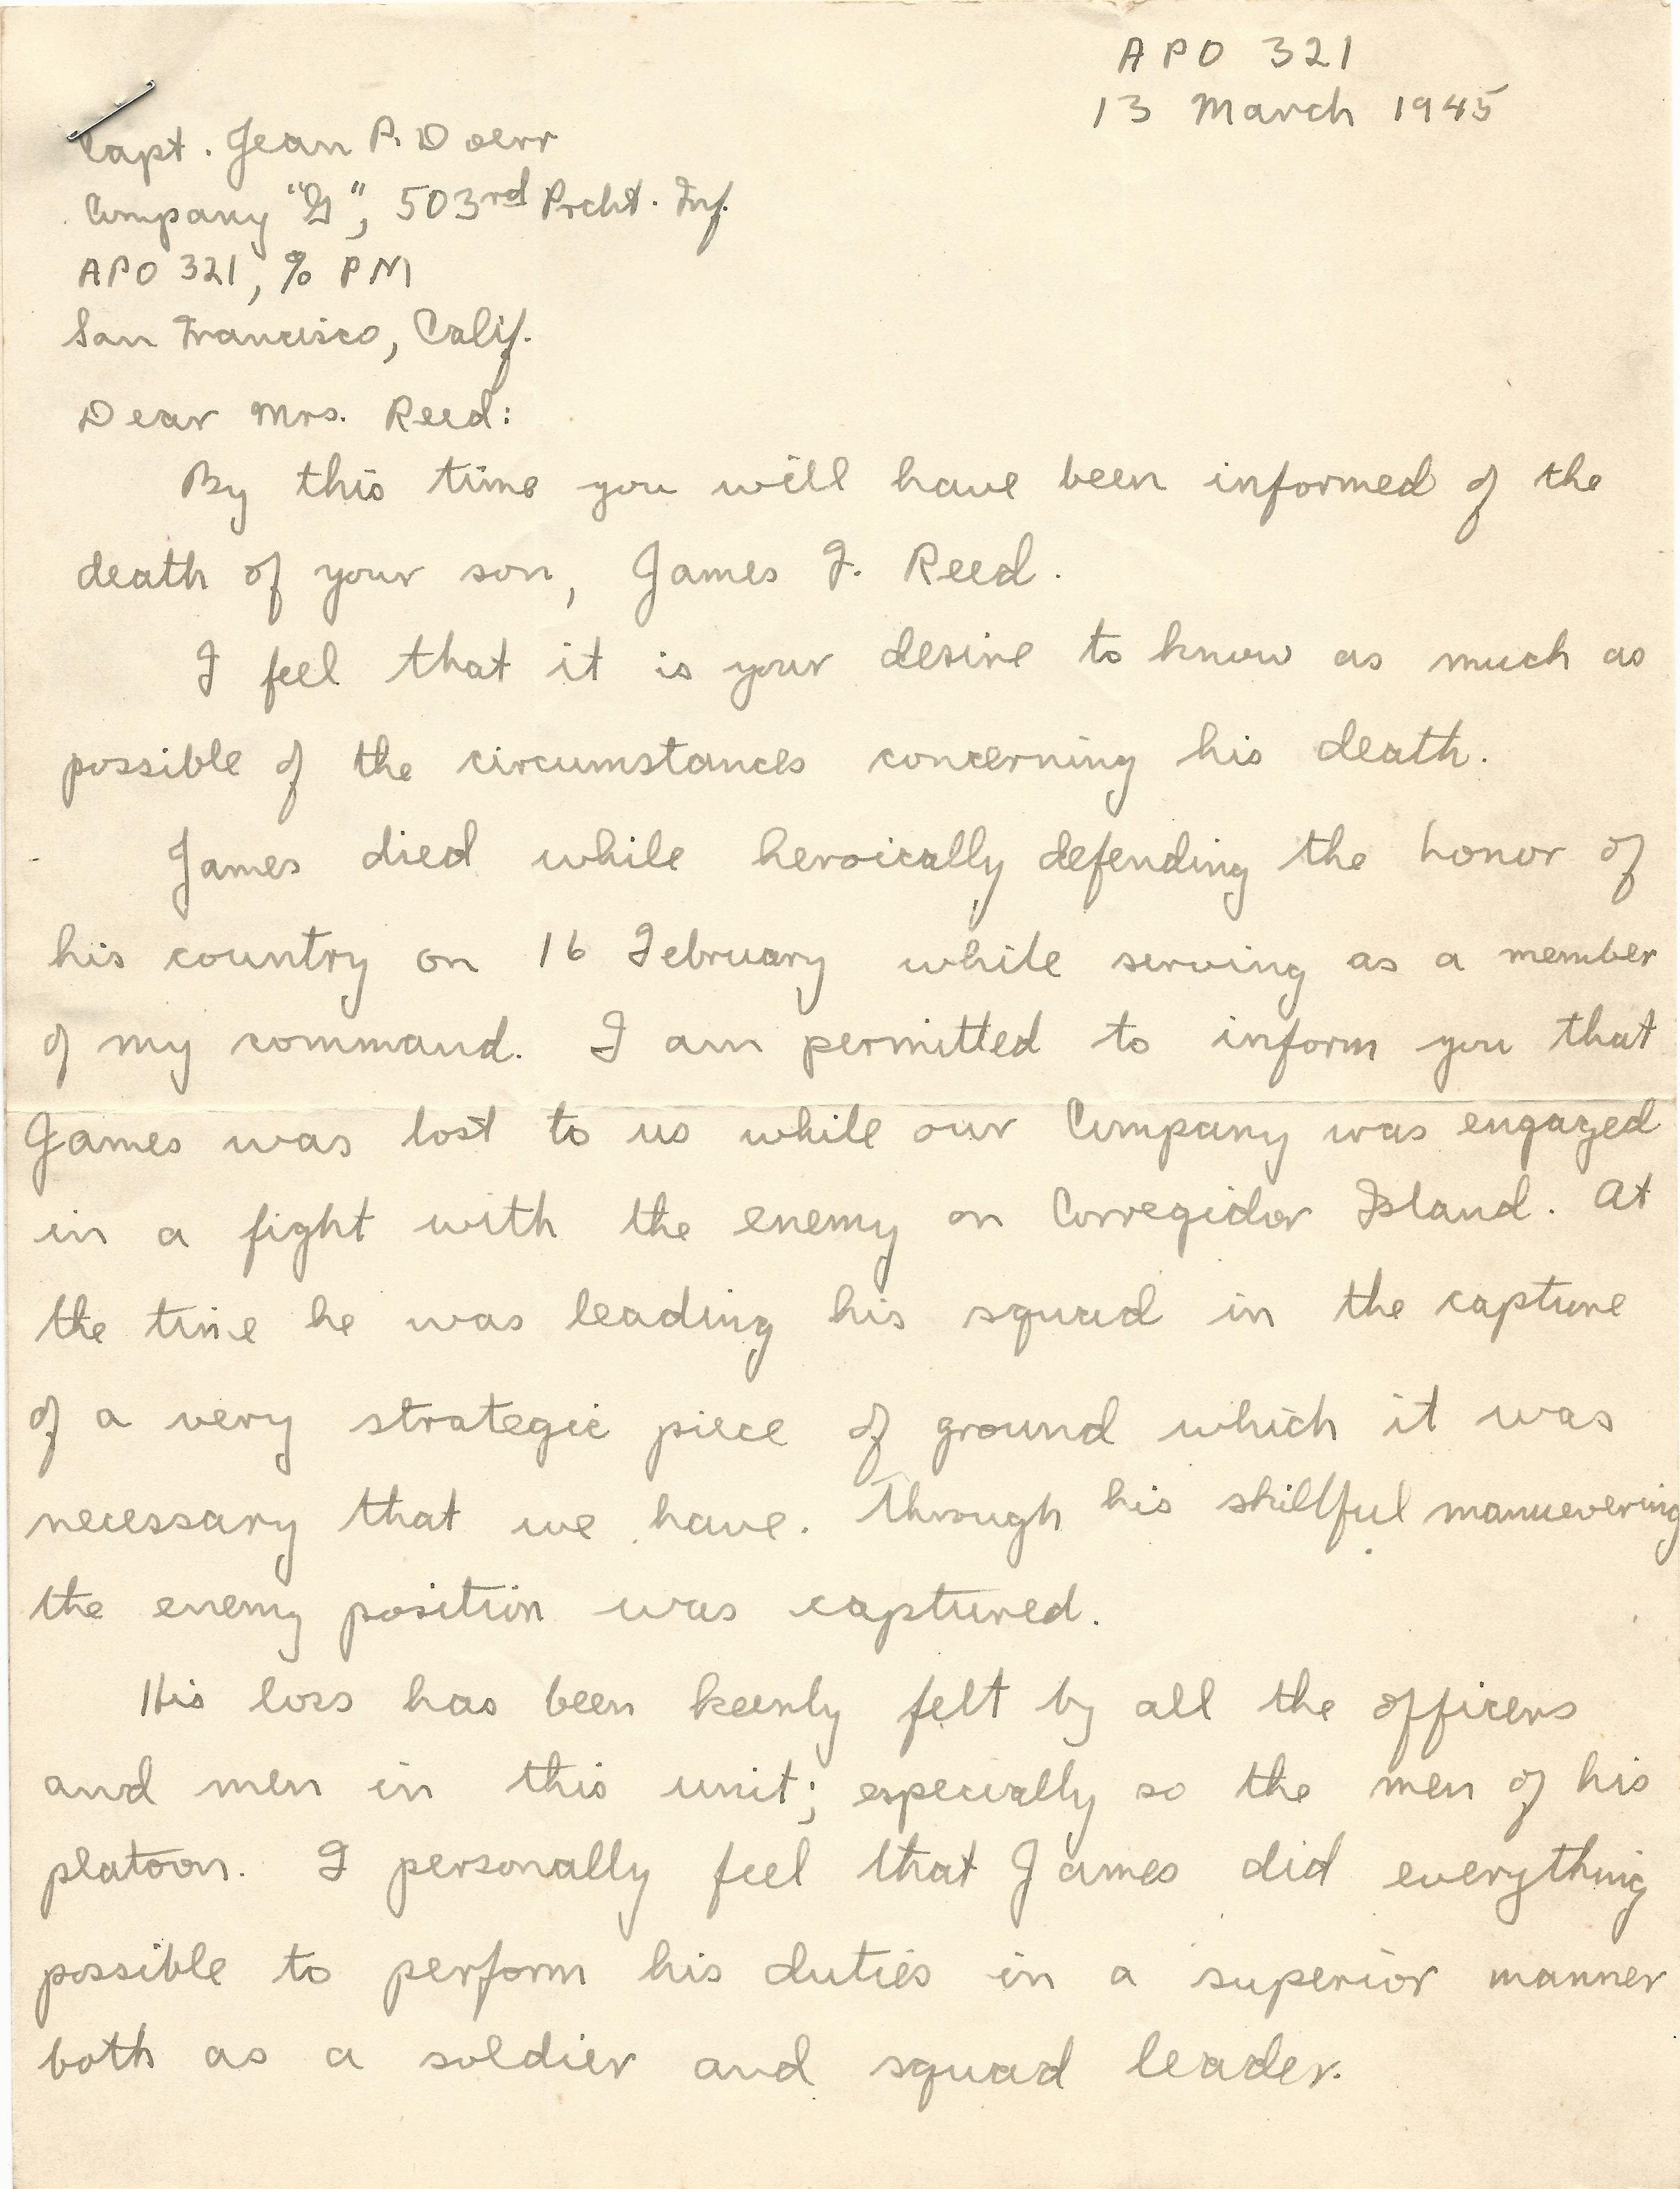 APO 321
13 March 1945
Capt. Jean P. Doerr
Company "G", 503rd Prcht. Inf.
APO 321, % PM
San Francisco, Calif.
Dear Mrs. Reed:
By this time you will have been informed of the
death of your son, James F. Reed.
I feel that it is your desire to know as much as
possible of the circumstances concerning his death.
James died while heroically defending the honor of
his country on 16 February while serving as a member
of my command. I am permitted to inform you that
James was lost to us while our Company was engaged
in a fight with the enemy on Corregidor Island. At
the time he was leading his squad in the capture
of a very strategic piece of ground which it was
necessary that we have. Through his skillful manuevering
the enemy position was captured.
His loss has been keenly felt by all the officers
and men in this unit; especially so the men of his
platoon. I personally feel that James did everything
possible to perform his duties in a superior manner
both as a soldier and squad leader.